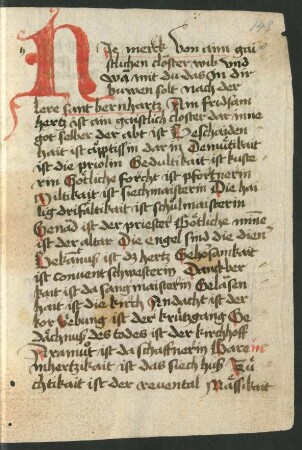 143
Nie merck von aim gai
stlichen closter wib und
wa mit du das In dir
buwen solt nach der
lere sant bernhartz Ain fridsam
hertz ist ain gaistlich closter dar inne
got selber der abt ist Beschaiden
hait ist cüpttissin dar in Demütikait
ist die priolin Gedultikait ist kuste
rin Götliche forcht ist pfortnerin
Miltikait ist siechmaisterin Die hai
lig drifaltikait ist schulmaisterin
Genad ist der priester Götliche mine
ist der altar Die engel sind die dien
Bekanus ist dz hertz Gehorsamkait
ist convent schwestern Danckber
kait ist da sangmaisterin Gelasen
hait ist die kirch Andacht ist der
kor Uebung ist der krützgang Ge
dächnus des todes ist der kirchhoff
Aramut ist da schaffnerin Barm
inhertzikait ist das siech hus Zü
chtikait ist der revental Mässikait